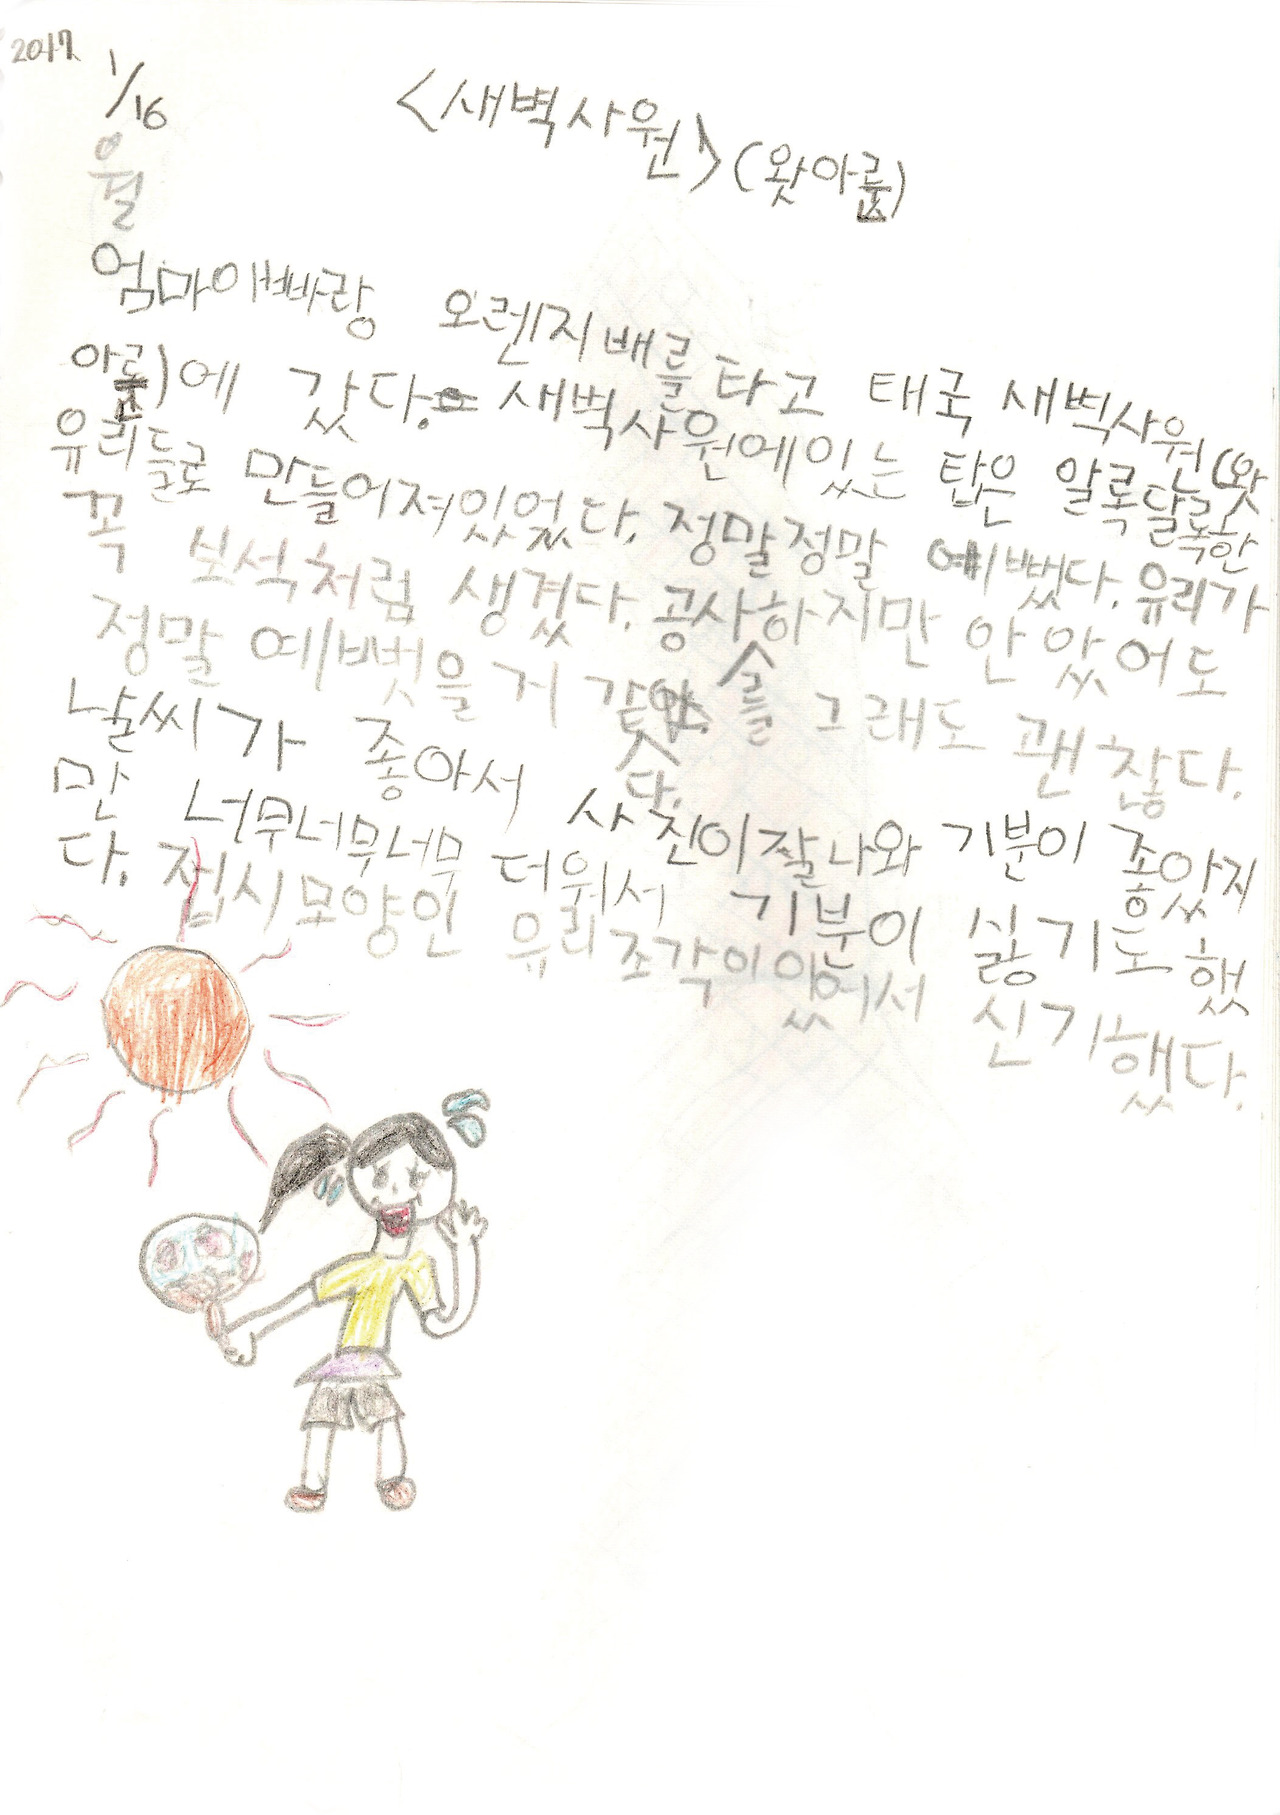 2017
1/16
월
<새벽사원>(왓아룬)
엄마아빠랑 오렌지배를 타고 태국 새벽사원(왓
아룬)에 갔다. 새벽사원에있는 탑은 알록달록한
유리들로 만들어져있었다. 정말정말 예뻤다. 유리가
꼭 보석처럼 생겼다. 공사를 하지만 안 았어도
정말 예뻣을 거 같다. 그래도 괜찮다.
날씨가 좋아서 사진이잘나와 기분이 좋았지
만 너무너무너무 더워서 기분이 싫기도 했
다. 접시모양인 유리조각이있어서 신기했다.